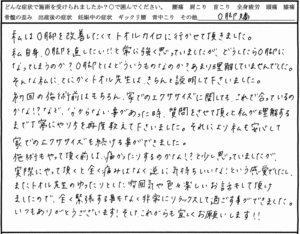 どんな症状で施術を受けられましたか?○で囲んでください。 腰痛 肩こり 首こり 全身疲労 頭痛 膝痛
骨盤の歪み 出産後の症状 妊娠中の症状 ギックリ腰 背中こり その他 O脚矯
私はO脚を改善したくてトオルカイロに行かせて頂きました。
私自身、O脚を直したい!!と常に強く思っていましたが、どうしたらO脚に
なってしまうのか?O脚とはどういうものなのか?あまり理解していませんでした。
そんな私に、とにかくトオル先生は、きちんと説明して下さいました。
毎回の施術前はもちろん、家でのエクササイズに関しても、これで合っているの
かな!?など、分からない事があった時、質問させて頂くと私が理解する
まで丁寧にやり方を再度教えて下さいました。それにより私も安心して
家でのエクササイズも続ける事ができました。
施術もやって頂く前は、痛かったりするのかな!?と少し思っていましたが、
実際にやって頂くと全く痛みはなく逆に気持ちいいな!という感覚でした。
またトオル先生のゆったりとした雰囲気や色々楽しいお話をして頂け
ましたので、全く緊張する事もなく非常にリラックスして過ごす事ができました。
いつもありがとうございます!そしてこれからも宜しくお願いします!!